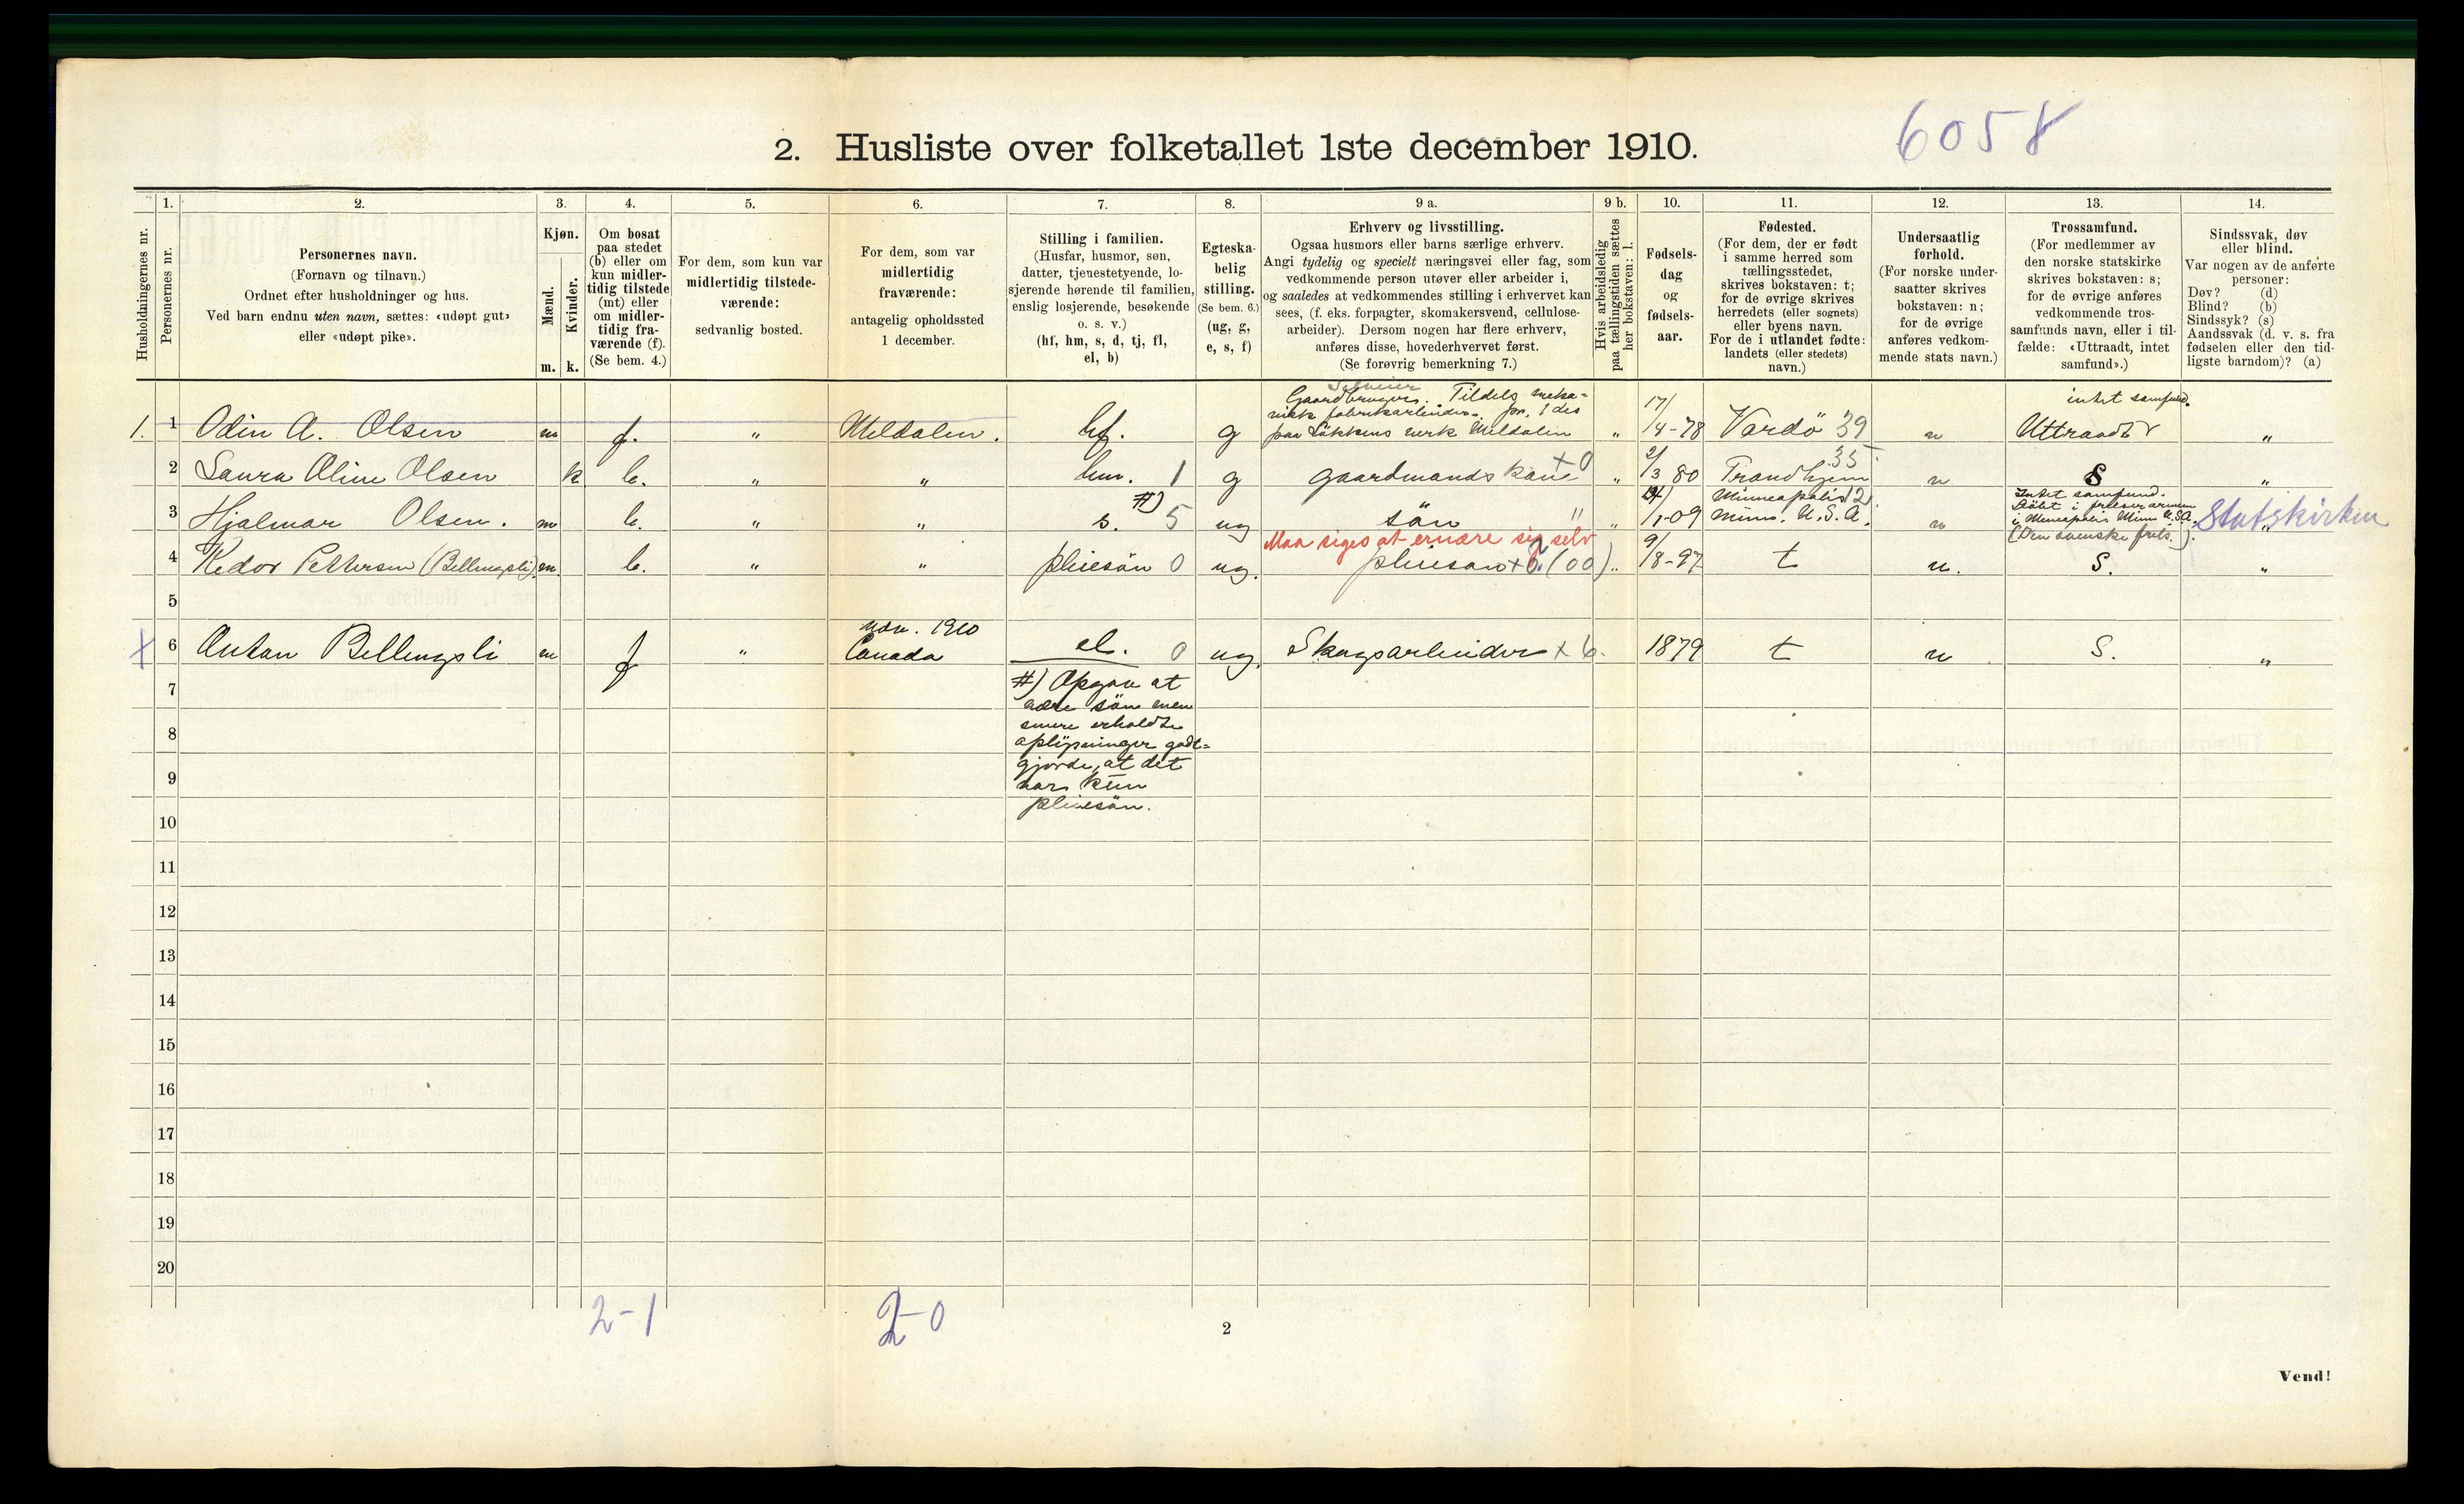 6058
2. Husliste over folketallet 1ste december 1910.
Husholdningernes nr.
1.
Personernes nr.
2.
Personernes navn.
(Fornavn og tilnavn.)
Ordnet efter husholdninger og hus.
Ved barn endnu uten navn, sættes: «udøpt gut»
eller «udøpt pike».
3.
Kjøn.
Mænd.
Kvinder.
m. k.
4.
Om bosat
paa stedet
(b) eller om
kun midler-
tidig tilstede
(mt) eller
om midler-
tidig fra-
værende (f).
(Se bem. 4.)
5.
For dem, som kun var
midlertidig tilstede-
værende:
sedvanlig bosted.
6.
For dem, som var
midlertidig
fraværende:
antagelig opholdssted
1 december.
7.
Stilling i familien.
(Husfar, husmor, søn,
datter, tjenestetyende, lo-
sjerende hørende til familien,
enslig losjerende, besøkende
o. s. v.)
(hf, hm, s, d, tj, fl,
el, b)
8.
Egteska-
belig
stilling.
(Se bem. 6.)
(ug, g,
e, s, f)
9 a.
Erhverv og livsstilling.
Ogsaa husmors eller barns særlige erhverv.
Angi tydelig og specielt næringsvei eller fag, som
vedkommende person utøver eller arbeider i,
og saaledes at vedkommendes stilling i erhvervet kan
sees, (f. eks. forpagter, skomakersvend, cellulose-
arbeider). Dersom nogen har flere erhverv,
anføres disse, hovederhvervet først.
(Se forøvrig bemerkning 7.)
9 b.
Hvis arbeidsledig
paa tællingstiden sættes
her bokstaven: l.
10.
Fødsels-
dag
og
fødsels-
aar.
11.
Fødested.
(For dem, der er født
i samme herred som
tællingsstedet,
skrives bokstaven: t;
for de øvrige skrives
herredets (eller sognets)
eller byens navn.
For de i utlandet fødte:
landets (eller stedets)
navn.)
12.
Undersaatlig
forhold.
(For norske under-
saatter skrives
bokstaven: n;
for de øvrige
anføres vedkom-
mende stats navn.)
13.
Trossamfund.
(For medlemmer av
den norske statskirke
skrives bokstaven: s;
for de øvrige anføres
vedkommende tros-
samfunds navn, eller i til-
fælde: «Uttraadt, intet
samfund».)
14.
Sindssvak, døv
eller blind.
Var nogen av de anførte
personer:
Døv? (d)
Blind? (b)
Sindssyk? (s)
Aandssvak (d. v. s. fra
fødselen eller den tid-
ligste barndom)? (a)
Selveier
Gaardbruger. Tildels meka-
nisk fabrikarbeider. pr. 1 des
intet samfund.
1. 1 Odin A. Olsen m f. " Meldalen. hf. g paa Løkkens verk Meldalen " 17/4-78 Vardö 39 n Uttraadt "
2 Laura Oline Olsen k b. " " hm. 1 g gaardmands kone +0 " 2/3 80 Trondhjem 35 n S "
Minneapolis 12 Intet samfund.
Döbt i frelserarmeen
3 Hjalmar Olsen. m b. " " s. #) 5 ug sön " " /1-09 Minn. U.S.A. n i Mineapolis Minn U.S.A. " Statskirken
(Den svenske frels.).
Maa siges at ernære sig selv
4 Kedor Pettersen (Bellingsli) m. b. " " pleiesön 0 ug. pleiesön + (00) " 9/8-97 t n. S. "
5
6 x Anton Bellingsli m f " nov. 1910 Canada el. 0 ug. Skogsarbeider + 6. 1879 t n S. "
7
8
9
10
#) Opgav at
være sön men
senere erholdte
oplysninger godt-
gjorde, at det
var kun
pleiesön.
11
12
13
14
15
16
17
18
19
20
2-1
2-0
2
Vend!